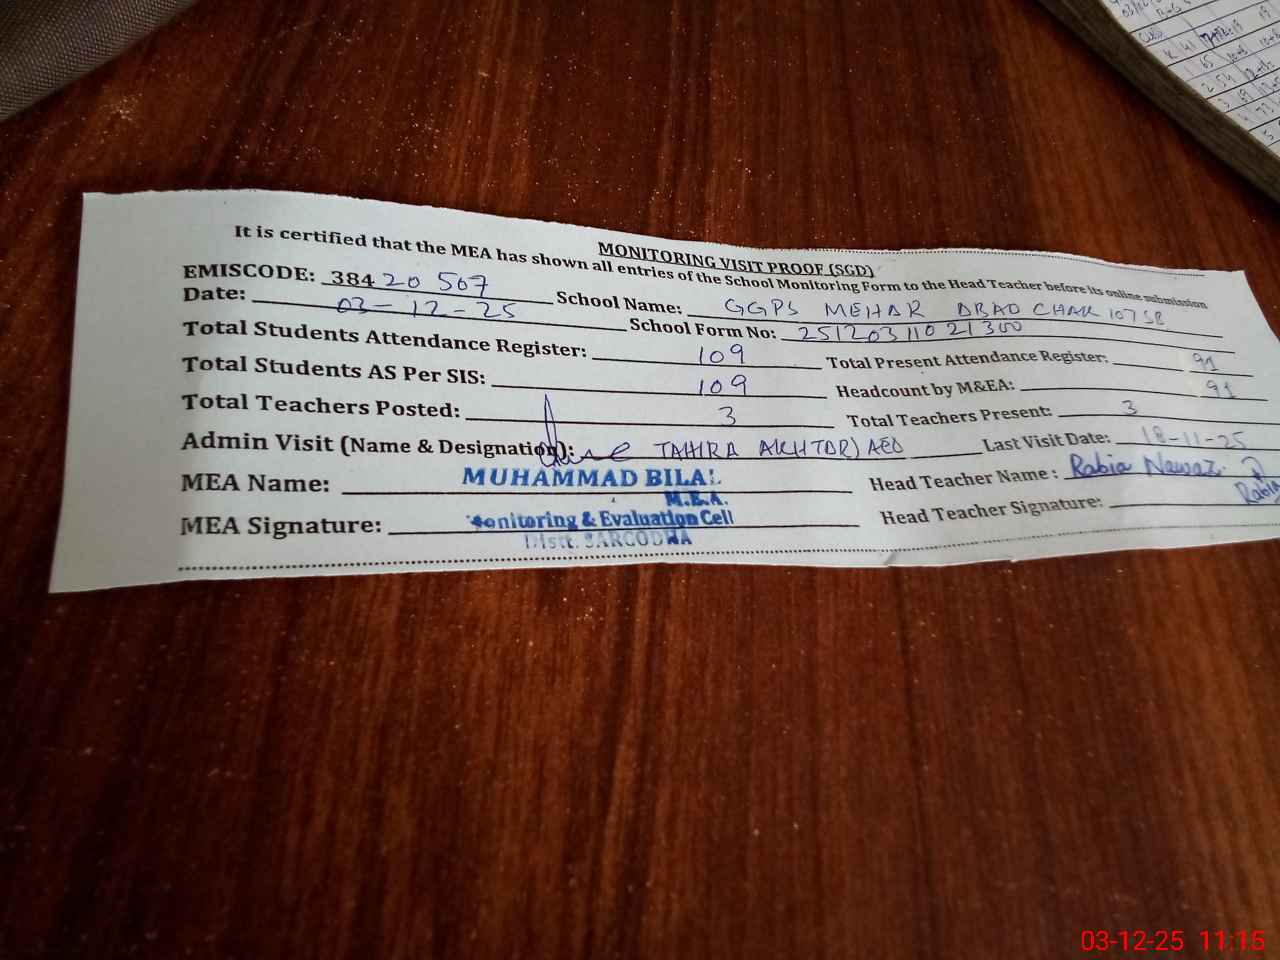 MONITORING VISIT PROOF (SGD)
It is certified that the MEA has shown all entries of the School Monitoring Form to the Head Teacher before its online submission
EMISCODE: 38420507 School Name: GGPS MEHAR ABAD CHAK 107 SB
Date: 03-12-25 School Form No: 25120311021300
Total Students Attendance Register: 109 Total Present Attendance Register: 91
Total Students AS Per SIS: 109 Headcount by M&EA: 91
Total Teachers Posted: 3 Total Teachers Present: 3
Admin Visit (Name & Designation): TAHIRA AKHTAR) AEO Last Visit Date: 18-11-25
MEA Name: MUHAMMAD BILAL Head Teacher Name : Rabia Nawaz
M.E.A.
MEA Signature: Monitoring & Evaluation Cell Head Teacher Signature: Rabia
Distt. SARGODHA
03-12-25 11:15